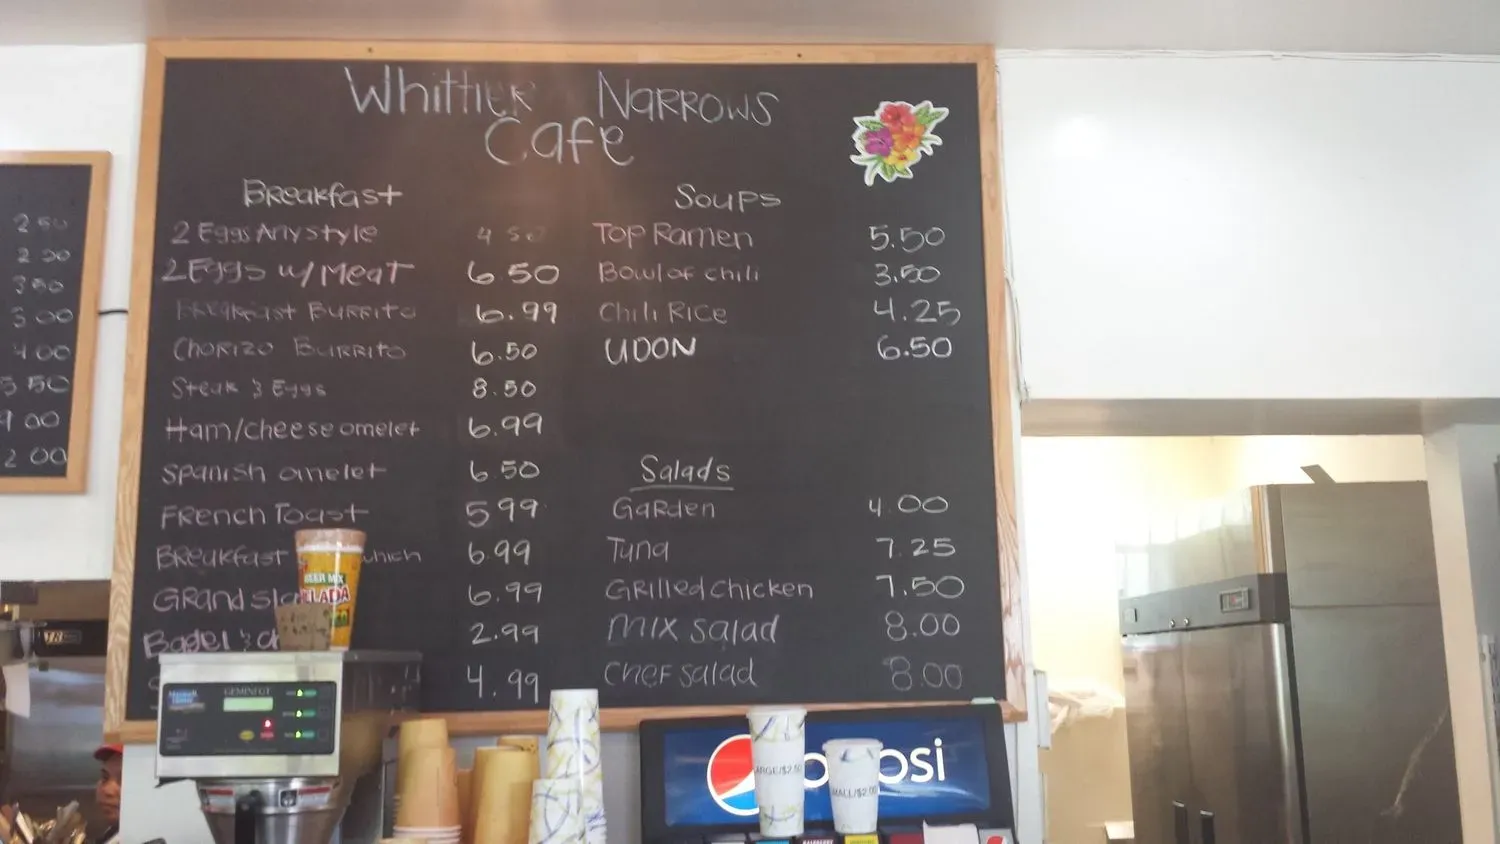 Whittier Narrows
Cafe
Breakfast
2 Eggs Any style 4 50
2 Eggs w/ Meat 6.50
Breakfast Burrito 6.99
Chorizo Burrito 6.50
Steak & Eggs 8.50
Ham/cheese omelet 6.99
Spanish omelet 6.50
French Toast 5 99
Breakfast 6.99
Grand 6.99
Bagel & 2.99
4.99
Soups
Top Ramen 5.50
Bowl of chili 3.50
Chili Rice 4.25
UDON 6.50
Salads
Garden 4.00
Tuna 7.25
Grilled chicken 7.50
Mix salad 8.00
Chef salad 8.00
2 50
2 00
3 50
3 00
4 00
5 50
9 00
2 00
BEER MIX
GEMINI
pepsi
LARGE/$2.50
SMALL/$2.00
RASPBERRY